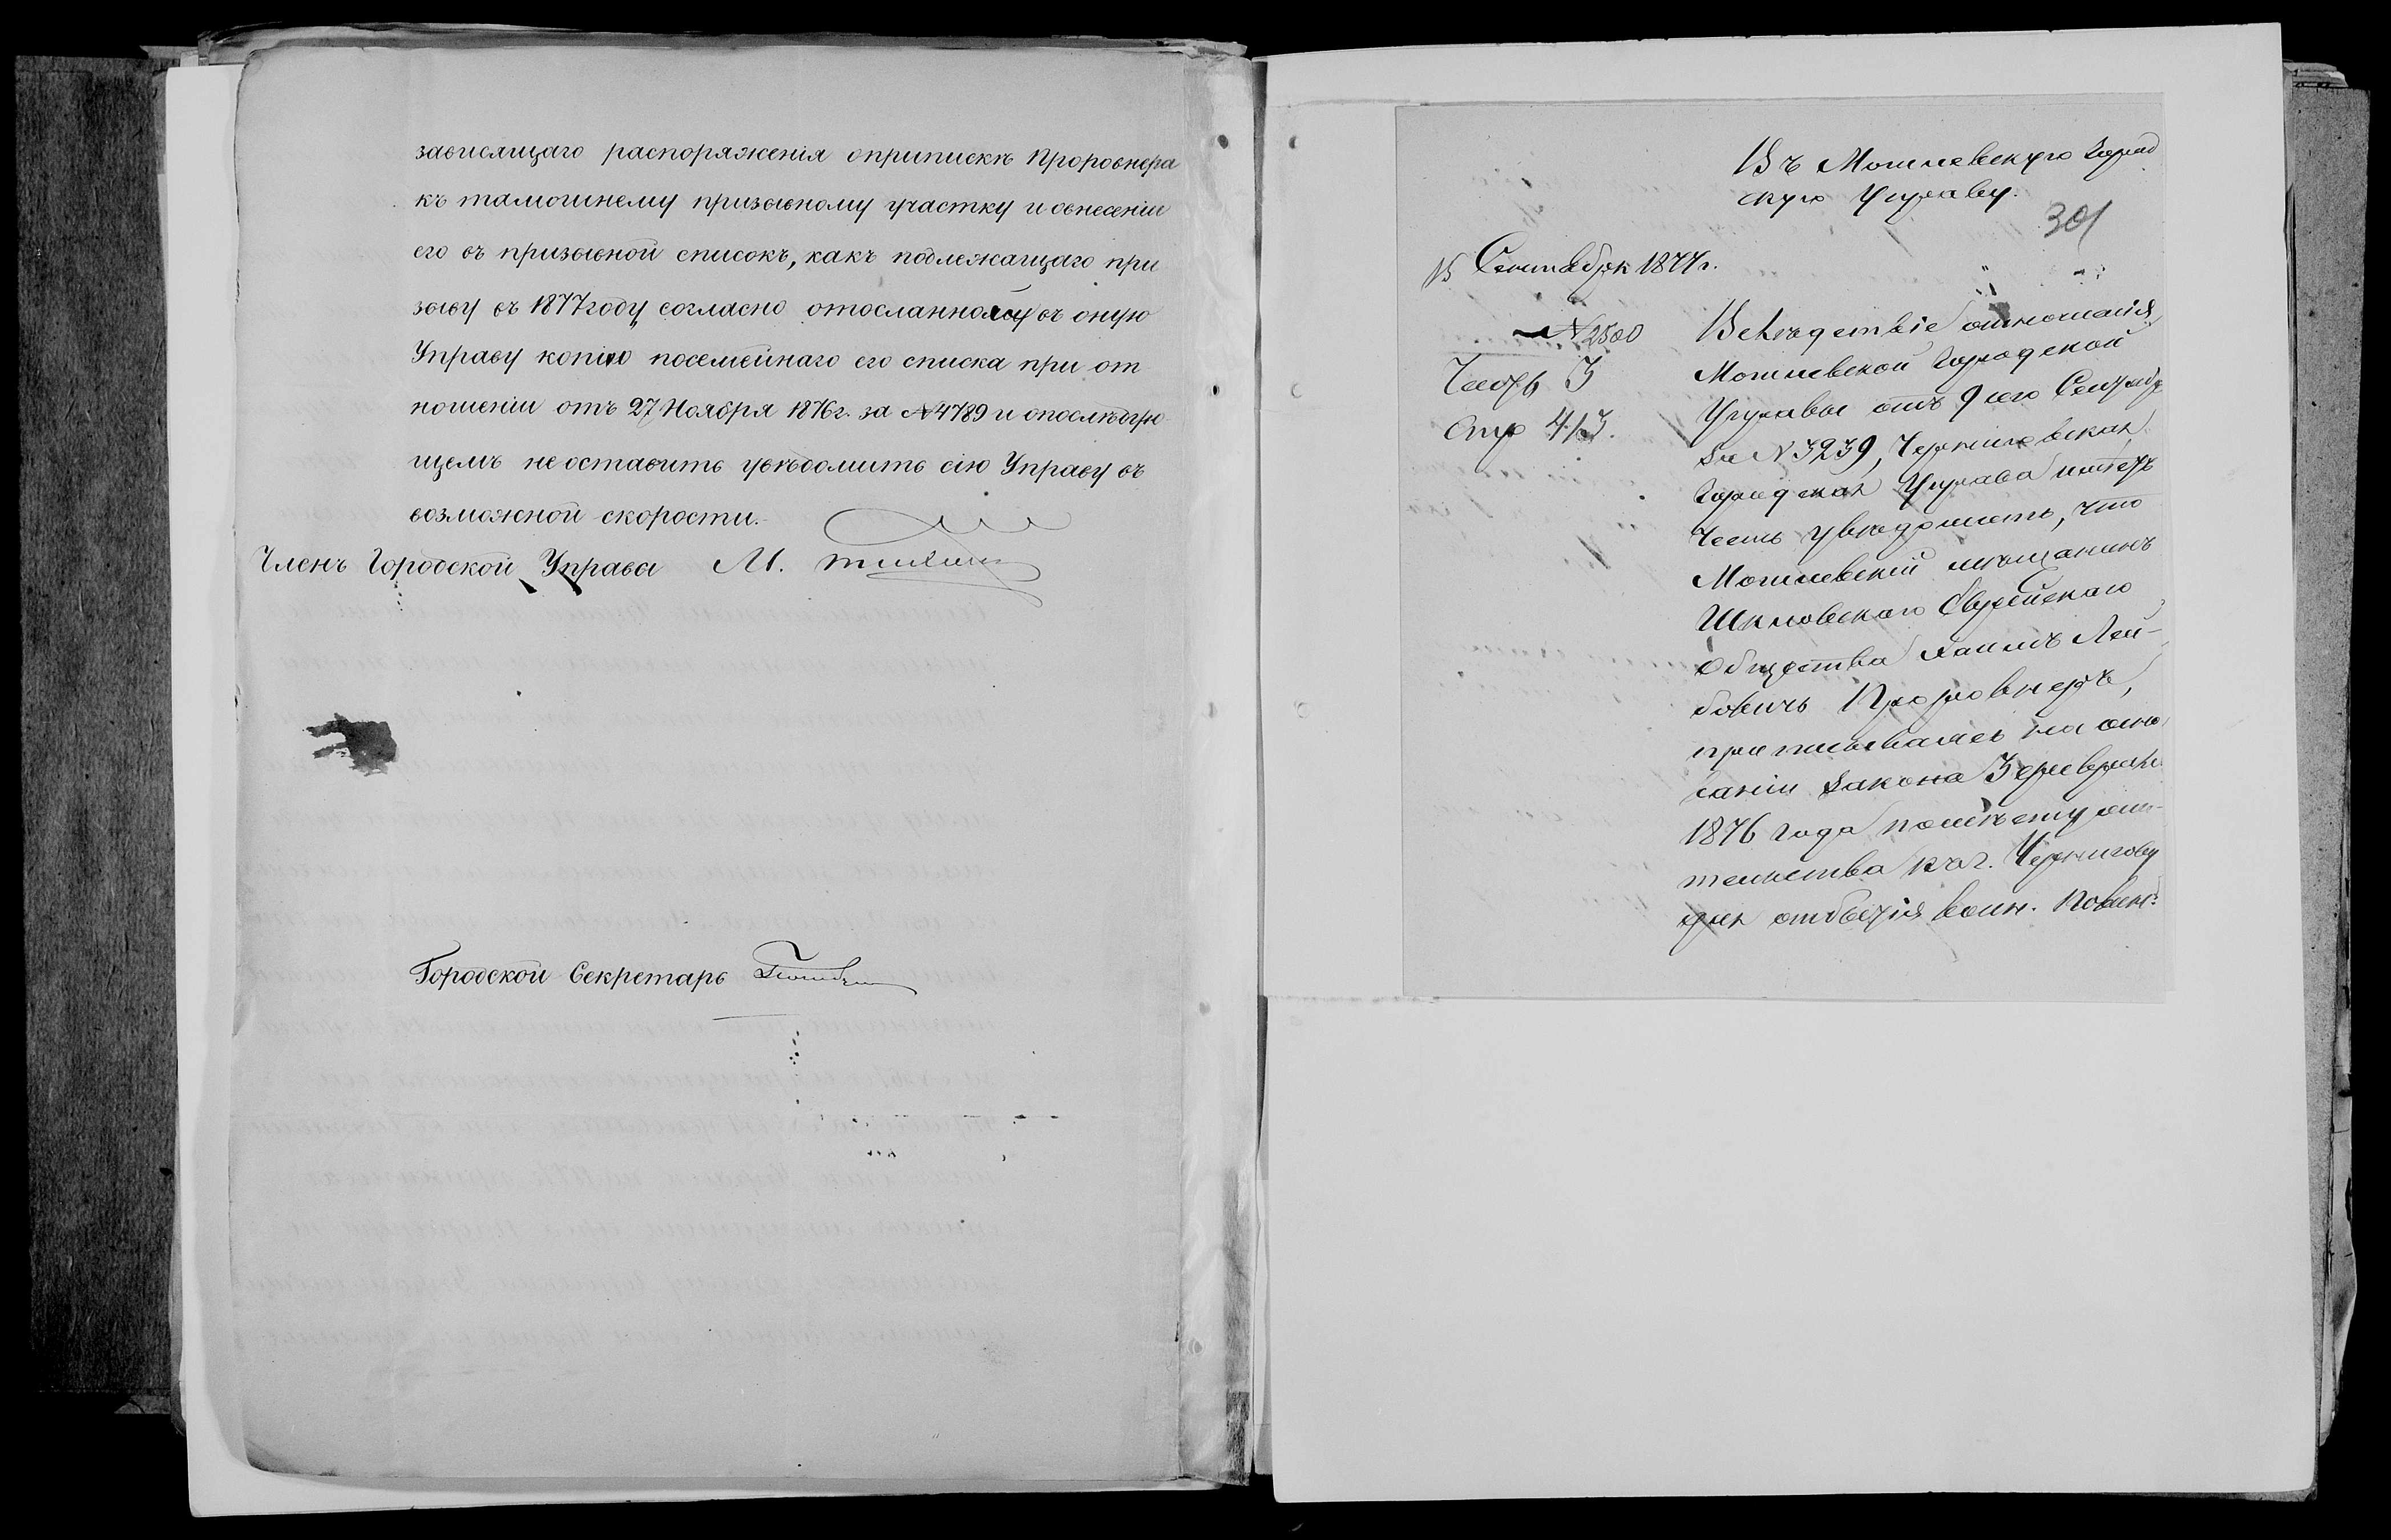 зависящаго распоряженія о припискѣ Проровнера
къ тамошнему призывному участку и о внесеніи
его въ призывной списокъ, какъ подлежащаго при
зыву въ 1877 году, согласно отосланной въ оную
Управу копіи посемейнаго его списка при от
ношеніи отъ 27 Ноября 1876 г. за № 4789 и о послѣдую
щемъ не оставить увѣдомить сію Управу въ
возможной скорости.
Членъ Городской Управы М.
Городской Секретарь
Въ Могилевскую Город
скую Управу.
301
15 Сентября 1877 г.
№ 2500
Вслѣдствіе отношенія
Могилевской Городской
Управы отъ 9 сего Сентяб
за № 3239, Черниговская
Городская Управа имѣетъ
честь увѣдомить, что
Могилевскій мѣщанинъ
Шкловскаго Еврейскаго
Общества Хаимъ Лей-
бовичъ Проровнеръ,
приписывался на осно
ваніи закона 3 февраля
1876 года по мѣсту жи-
тельства къ г. Чернигову
для отбытія воин. повин.